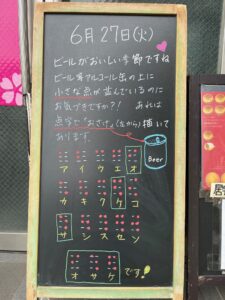 6月27日(火)
ビールがおいしい季節ですね
ビール等アルコール缶の上に
小さな点が並んでいるのに
お気づきですか?! あれは
点字で「おさけ」(左から)描いて
あります。
Beer
アイウエオ
カキクケコ
サシスセソ
オサケです!